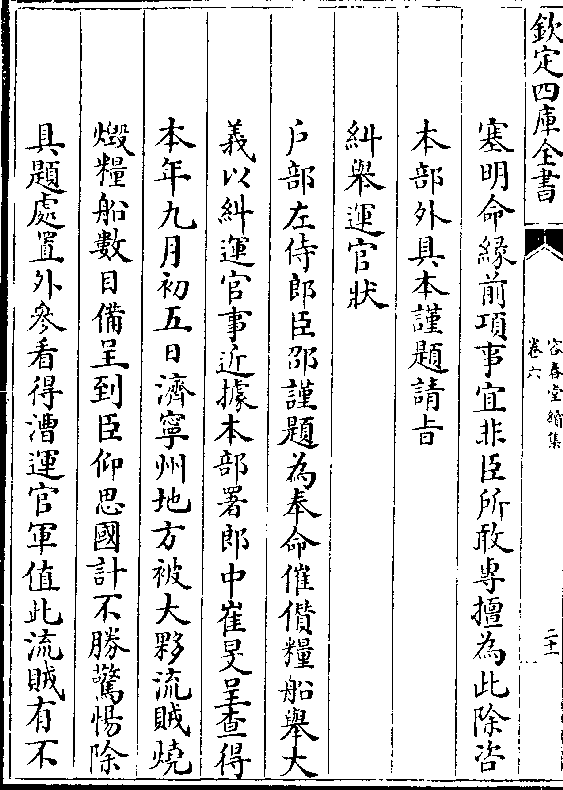 欽定四庫全書
容春堂續集
卷六
二十一
塞明命緣前項事宜非臣所敢專擅為此除咨
本部外具本謹題請旨
糾舉運官狀
戶部左侍郎臣邵謹題為奉命催儹糧船舉大
義以糾運官事近據本部署郎中崔旻呈查得
本年九月初五日濟寧州地方被大夥流賊燒
燬糧船數目備呈到臣仰思國計不勝驚惕除
具題處置外參看得漕運官軍值此流賊有不